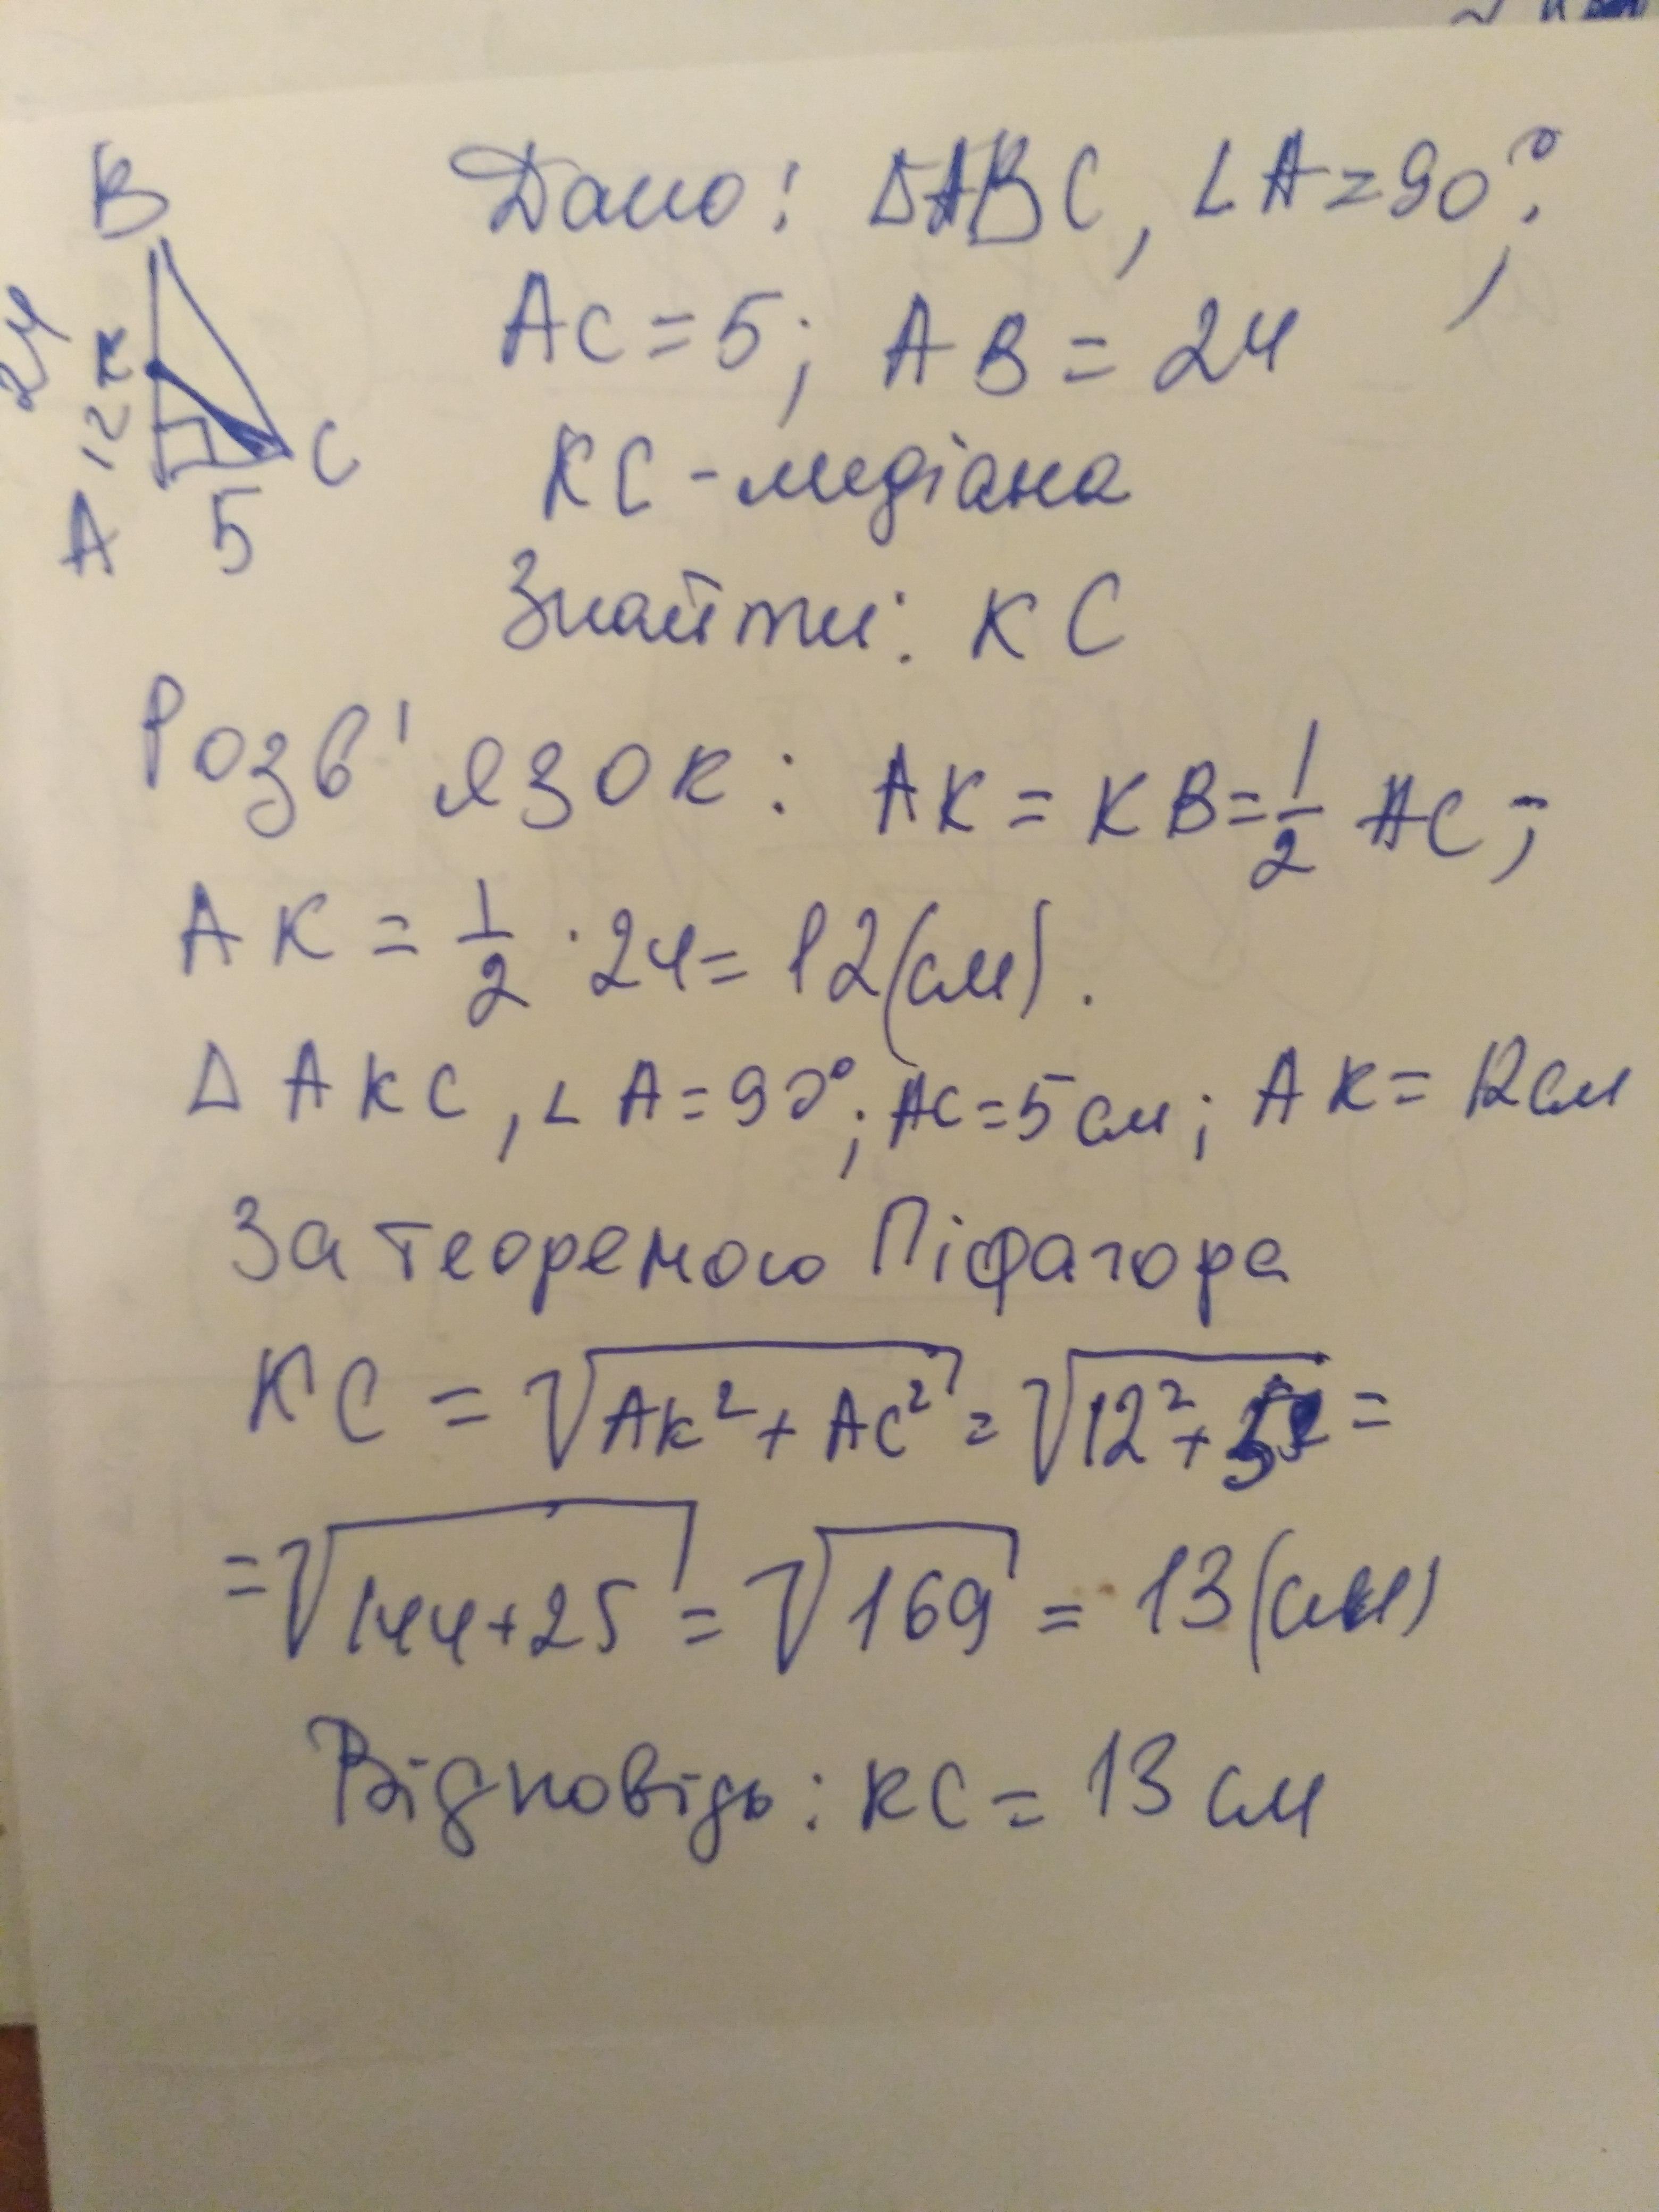 B
Дано: ΔABC, ∠A=90°;
24
K
12
C
A
5
AC=5; AB=24
KC-медіана
Знайти: KC
Розв'язок: AK=KB=1/2 AC;
AK=1/2·24=12(см).
ΔAKC, ∠A=90°; AC=5см; AK=12см
За теоремою Піфагора
KC=√AK²+AC²=√12²+5²=
=√144+25=√169=13(см)
Відповідь: KC=13см